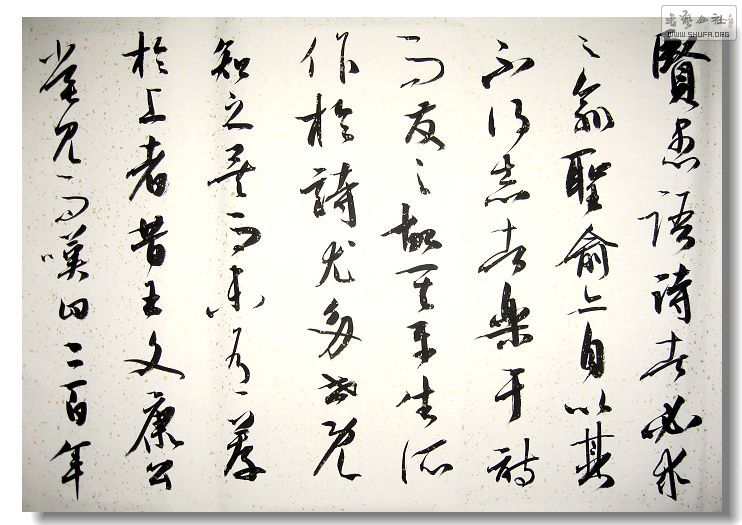 賢愚語詩者必求
之俞聖俞亦自以其
不得志者樂于詩
而發之故其平生所
作於詩尤多世既
知之矣而未有薦
於上者昔王文康公
嘗見而嘆曰二百年
书艺公社
WWW.SHUFA.ORG